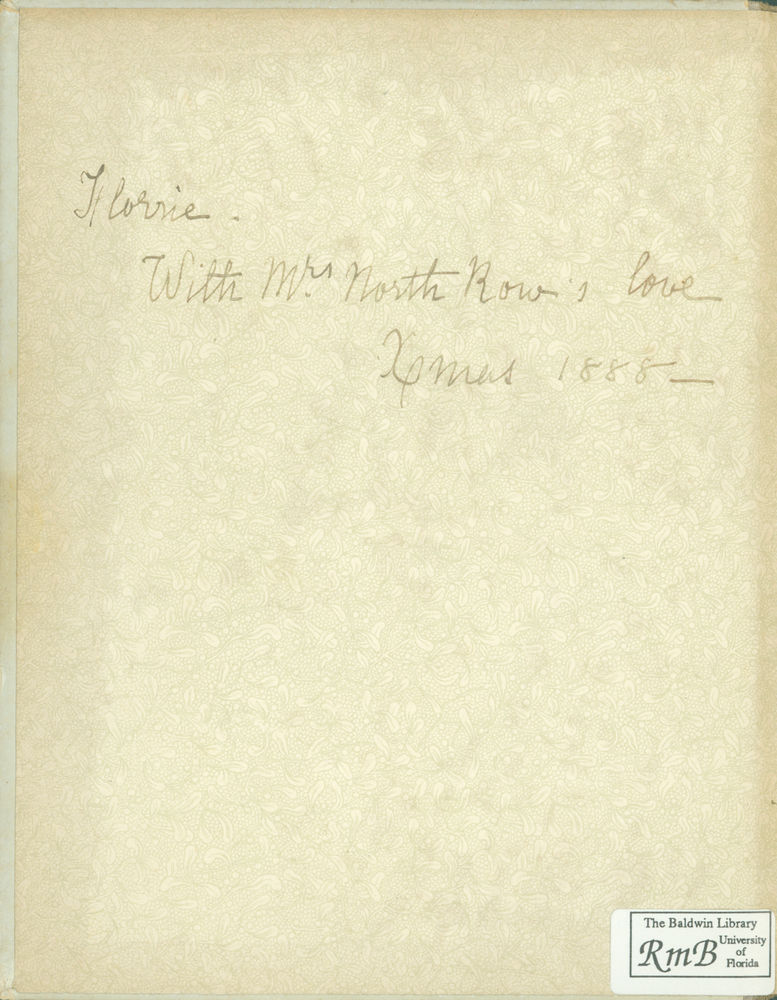 Florrie.
With Mrs North Row's love
Xmas 1888—
The Baldwin Library
RmB University of Florida